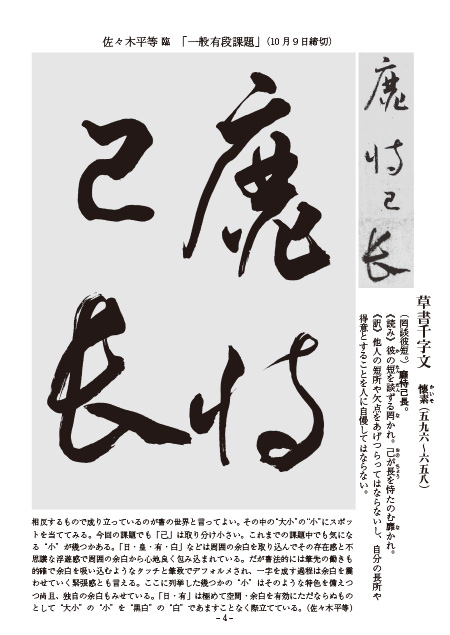 佐々木平等 臨 「一般有段課題」(10月9日締切)
靡恃
己長
靡恃己長
草書千字文 懐素(五九六~六五八)
(罔談彼短。)靡恃己長。
《読み》彼の短を談ずる罔かれ。己が長を恃たのむ靡かれ。
《訳》他人の短所や欠点をあげつらってはならないし、自分の長所や
得意とすることを人に自慢してはならない。
相反するもので成り立っているのが書の世界と言ってよい。その中の“大小”の“小”にスポッ
トを当ててみる。今回の課題でも「己」は取り分け小さい。これまでの課題中でも気にな
る“小”が幾つかある。「日・皇・有・白」などは周囲の余白を取り込んでその存在感と不
思議な浮遊感で周囲の余白から心地良く包み込まれている。だが書法的には筆先の働きも
的確で余白を吸い込むようなタッチと筆致でデフォルメされ、一字を成す過程は余白を震
わせていく緊張感とも言える。ここに列挙した幾つかの“小”はそのような特色を備えつ
つ尚且、独自の余白もみせている。「日・有」は極めて空間・余白を有効にただならぬもの
として“大小”の“小”を“黒白”の“白”であますことなく際立てている。(佐々木平等)
- 4 -